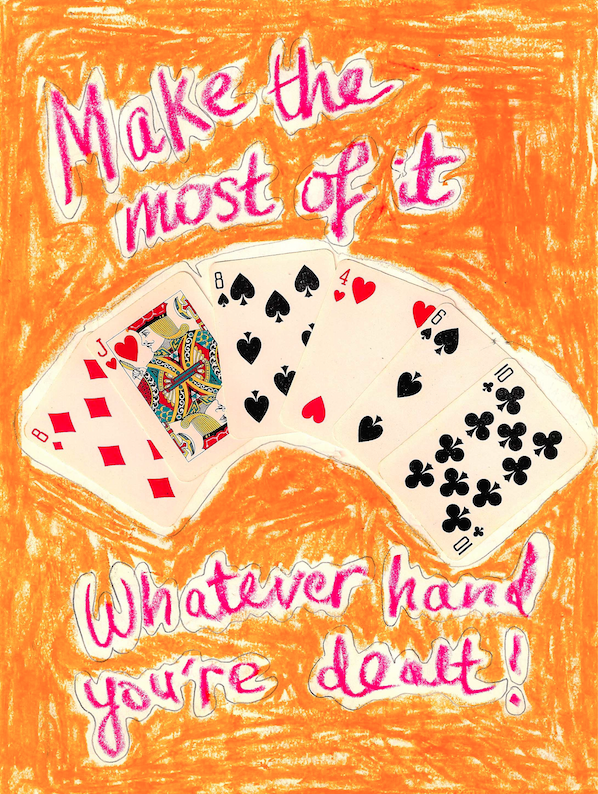 Make the
most of it
8
J
8
4
6
10
10
Whatever hand
you're dealt!